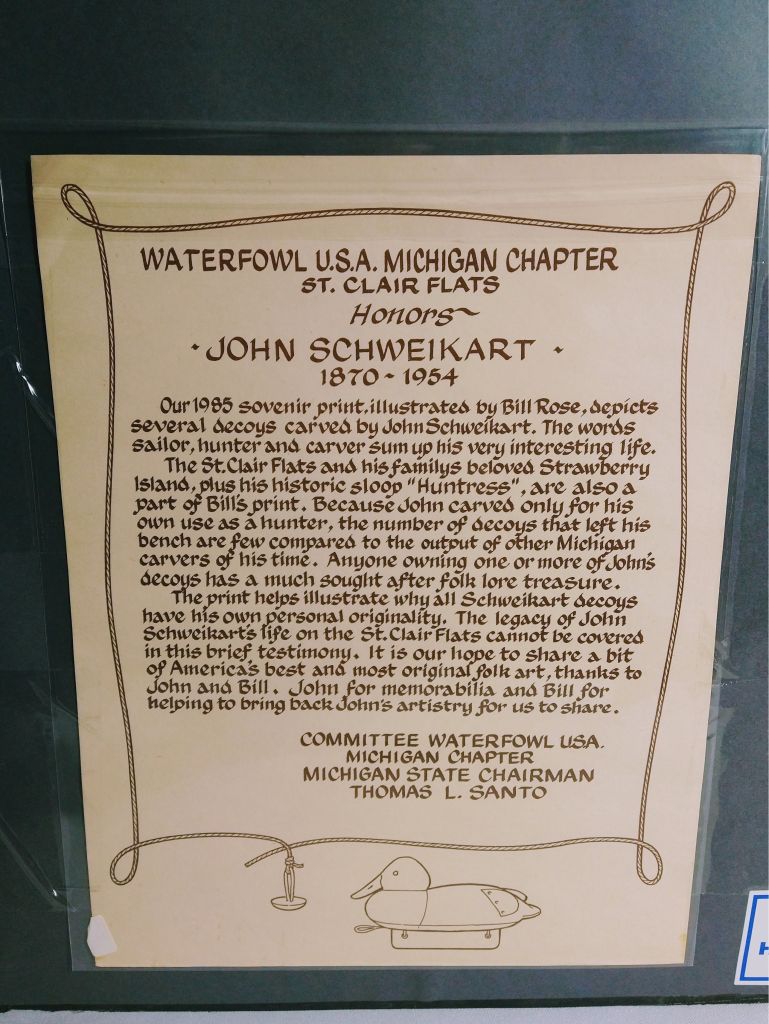 WATERFOWL U.S.A. MICHIGAN CHAPTER
ST. CLAIR FLATS
Honors~
· JOHN SCHWEIKART ·
1870 - 1954
Our 1985 sovenir print, illustrated by Bill Rose, depicts
several decoys carved by John Schweikart. The words
sailor, hunter and carver sum up his very interesting life.
The St. Clair Flats and his familys beloved Strawberry
Island, plus his historic sloop "Huntress", are also a
part of Bill's print. Because John carved only for his
own use as a hunter, the number of decoys that left his
bench are few compared to the output of other Michigan
carvers of his time. Anyone owning one or more of John's
decoys has a much sought after folk lore treasure.
The print helps illustrate why all Schweikart decoys
have his own personal originality. The legacy of John
Schweikart's life on the St. Clair Flats cannot be covered
in this brief testimony. It is our hope to share a bit
of America's best and most original folk art, thanks to
John and Bill. John for memorabilia and Bill for
helping to bring back John's artistry for us to share.
COMMITTEE WATERFOWL U.S.A.
MICHIGAN CHAPTER
MICHIGAN STATE CHAIRMAN
THOMAS L. SANTO
H